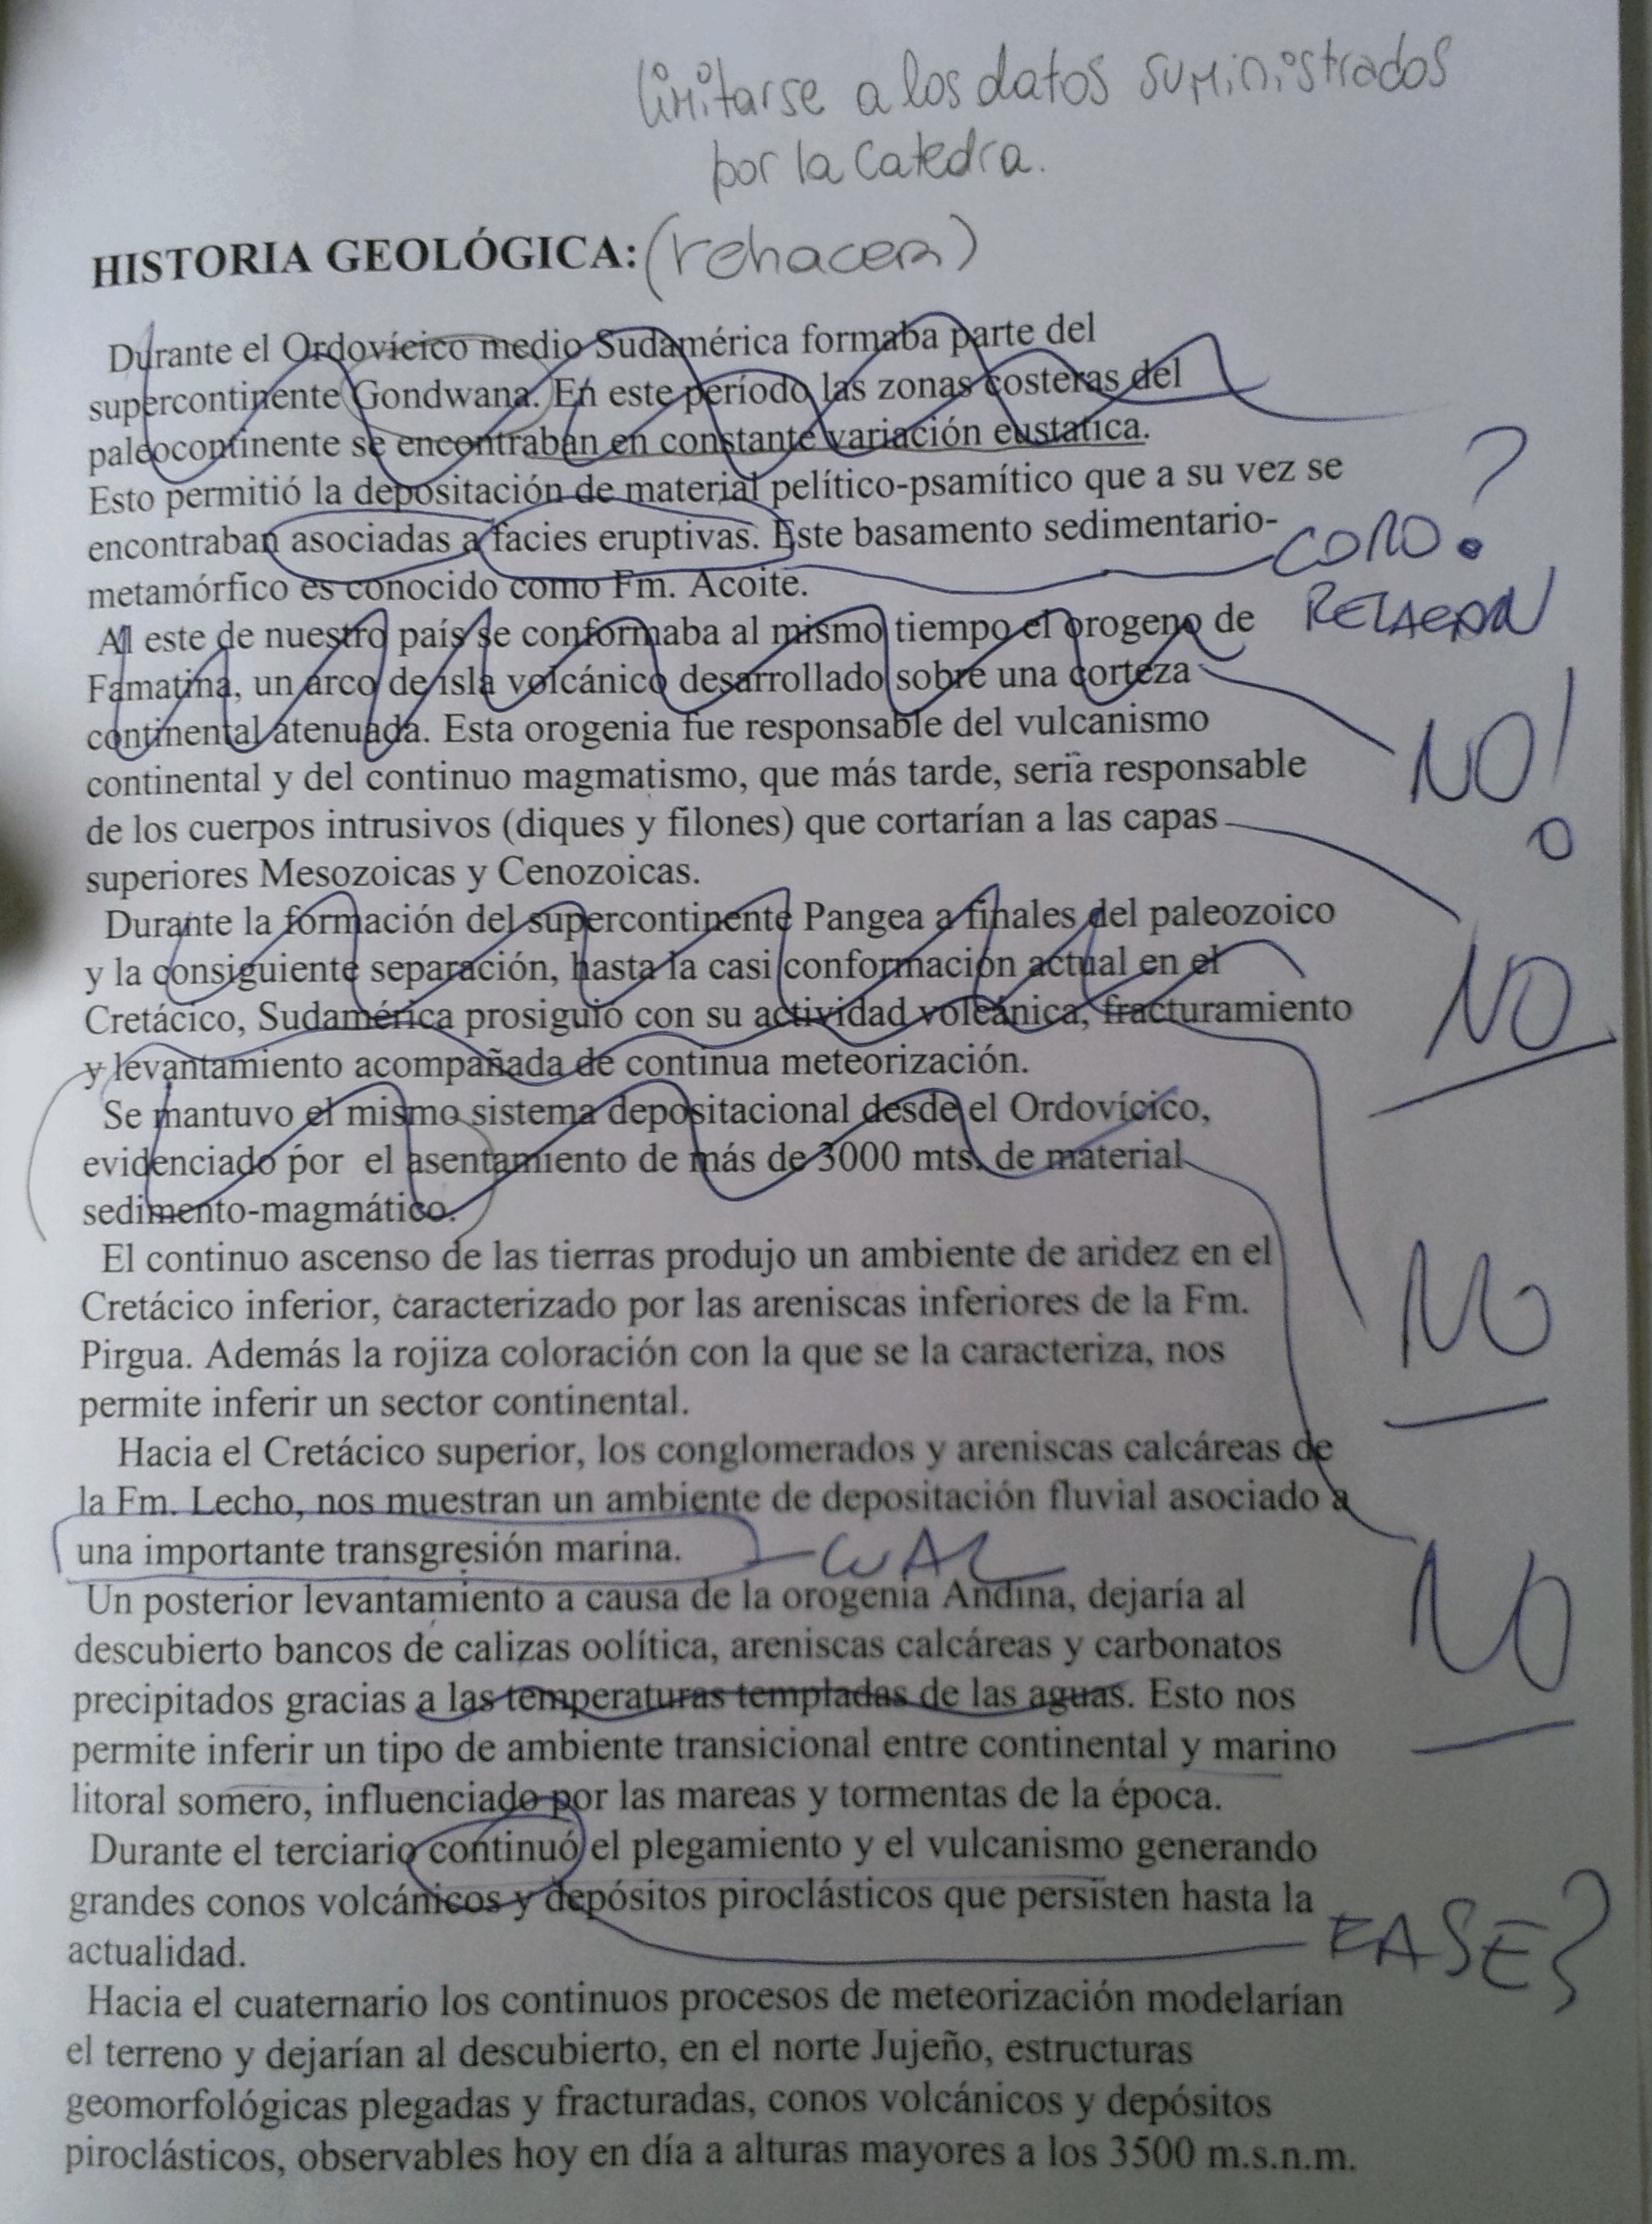 limitarse a los datos suministrados
por la Catedra.
HISTORIA GEOLÓGICA: (rehacer)
Durante el Ordovícico medio Sudamérica formaba parte del
supercontinente Gondwana. En este período las zonas costeras del
paleocontinente se encontraban en constante variación eustatica.
Esto permitió la depositación de material pelítico-psamítico que a su vez se
encontraban asociadas a facies eruptivas. Este basamento sedimentario-
COMO?
metamórfico es conocido como Fm. Acoite.
Al este de nuestro país se conformaba al mismo tiempo el orogeno de
Famatina, un arco de isla volcánico desarrollado sobre una corteza
continental atenuada. Esta orogenia fue responsable del vulcanismo
NO!
continental y del continuo magmatismo, que más tarde, seria responsable
de los cuerpos intrusivos (diques y filones) que cortarían a las capas
superiores Mesozoicas y Cenozoicas.
Durante la formación del supercontinente Pangea a finales del paleozoico
y la consiguiente separación, hasta la casi conformación actual en el
Cretácico, Sudamérica prosiguió con su actividad volcánica, fracturamiento
NO
y levantamiento acompañada de continua meteorización.
Se mantuvo el mismo sistema depositacional desde el Ordovícico,
evidenciado por el asentamiento de más de 3000 mts. de material
sedimento-magmático.
El continuo ascenso de las tierras produjo un ambiente de aridez en el
Cretácico inferior, caracterizado por las areniscas inferiores de la Fm.
NO
Pirgua. Además la rojiza coloración con la que se la caracteriza, nos
permite inferir un sector continental.
Hacia el Cretácico superior, los conglomerados y areniscas calcáreas de
la Fm. Lecho, nos muestran un ambiente de depositación fluvial asociado a
una importante transgresión marina. CUAL
Un posterior levantamiento a causa de la orogenia Andina, dejaría al
NO
descubierto bancos de calizas oolítica, areniscas calcáreas y carbonatos
precipitados gracias a las temperaturas templadas de las aguas. Esto nos
permite inferir un tipo de ambiente transicional entre continental y marino
litoral somero, influenciado por las mareas y tormentas de la época.
Durante el terciario continuó el plegamiento y el vulcanismo generando
grandes conos volcánicos y depósitos piroclásticos que persisten hasta la
FASE?
actualidad.
Hacia el cuaternario los continuos procesos de meteorización modelarían
el terreno y dejarían al descubierto, en el norte Jujeño, estructuras
geomorfológicas plegadas y fracturadas, conos volcánicos y depósitos
piroclásticos, observables hoy en día a alturas mayores a los 3500 m.s.n.m.